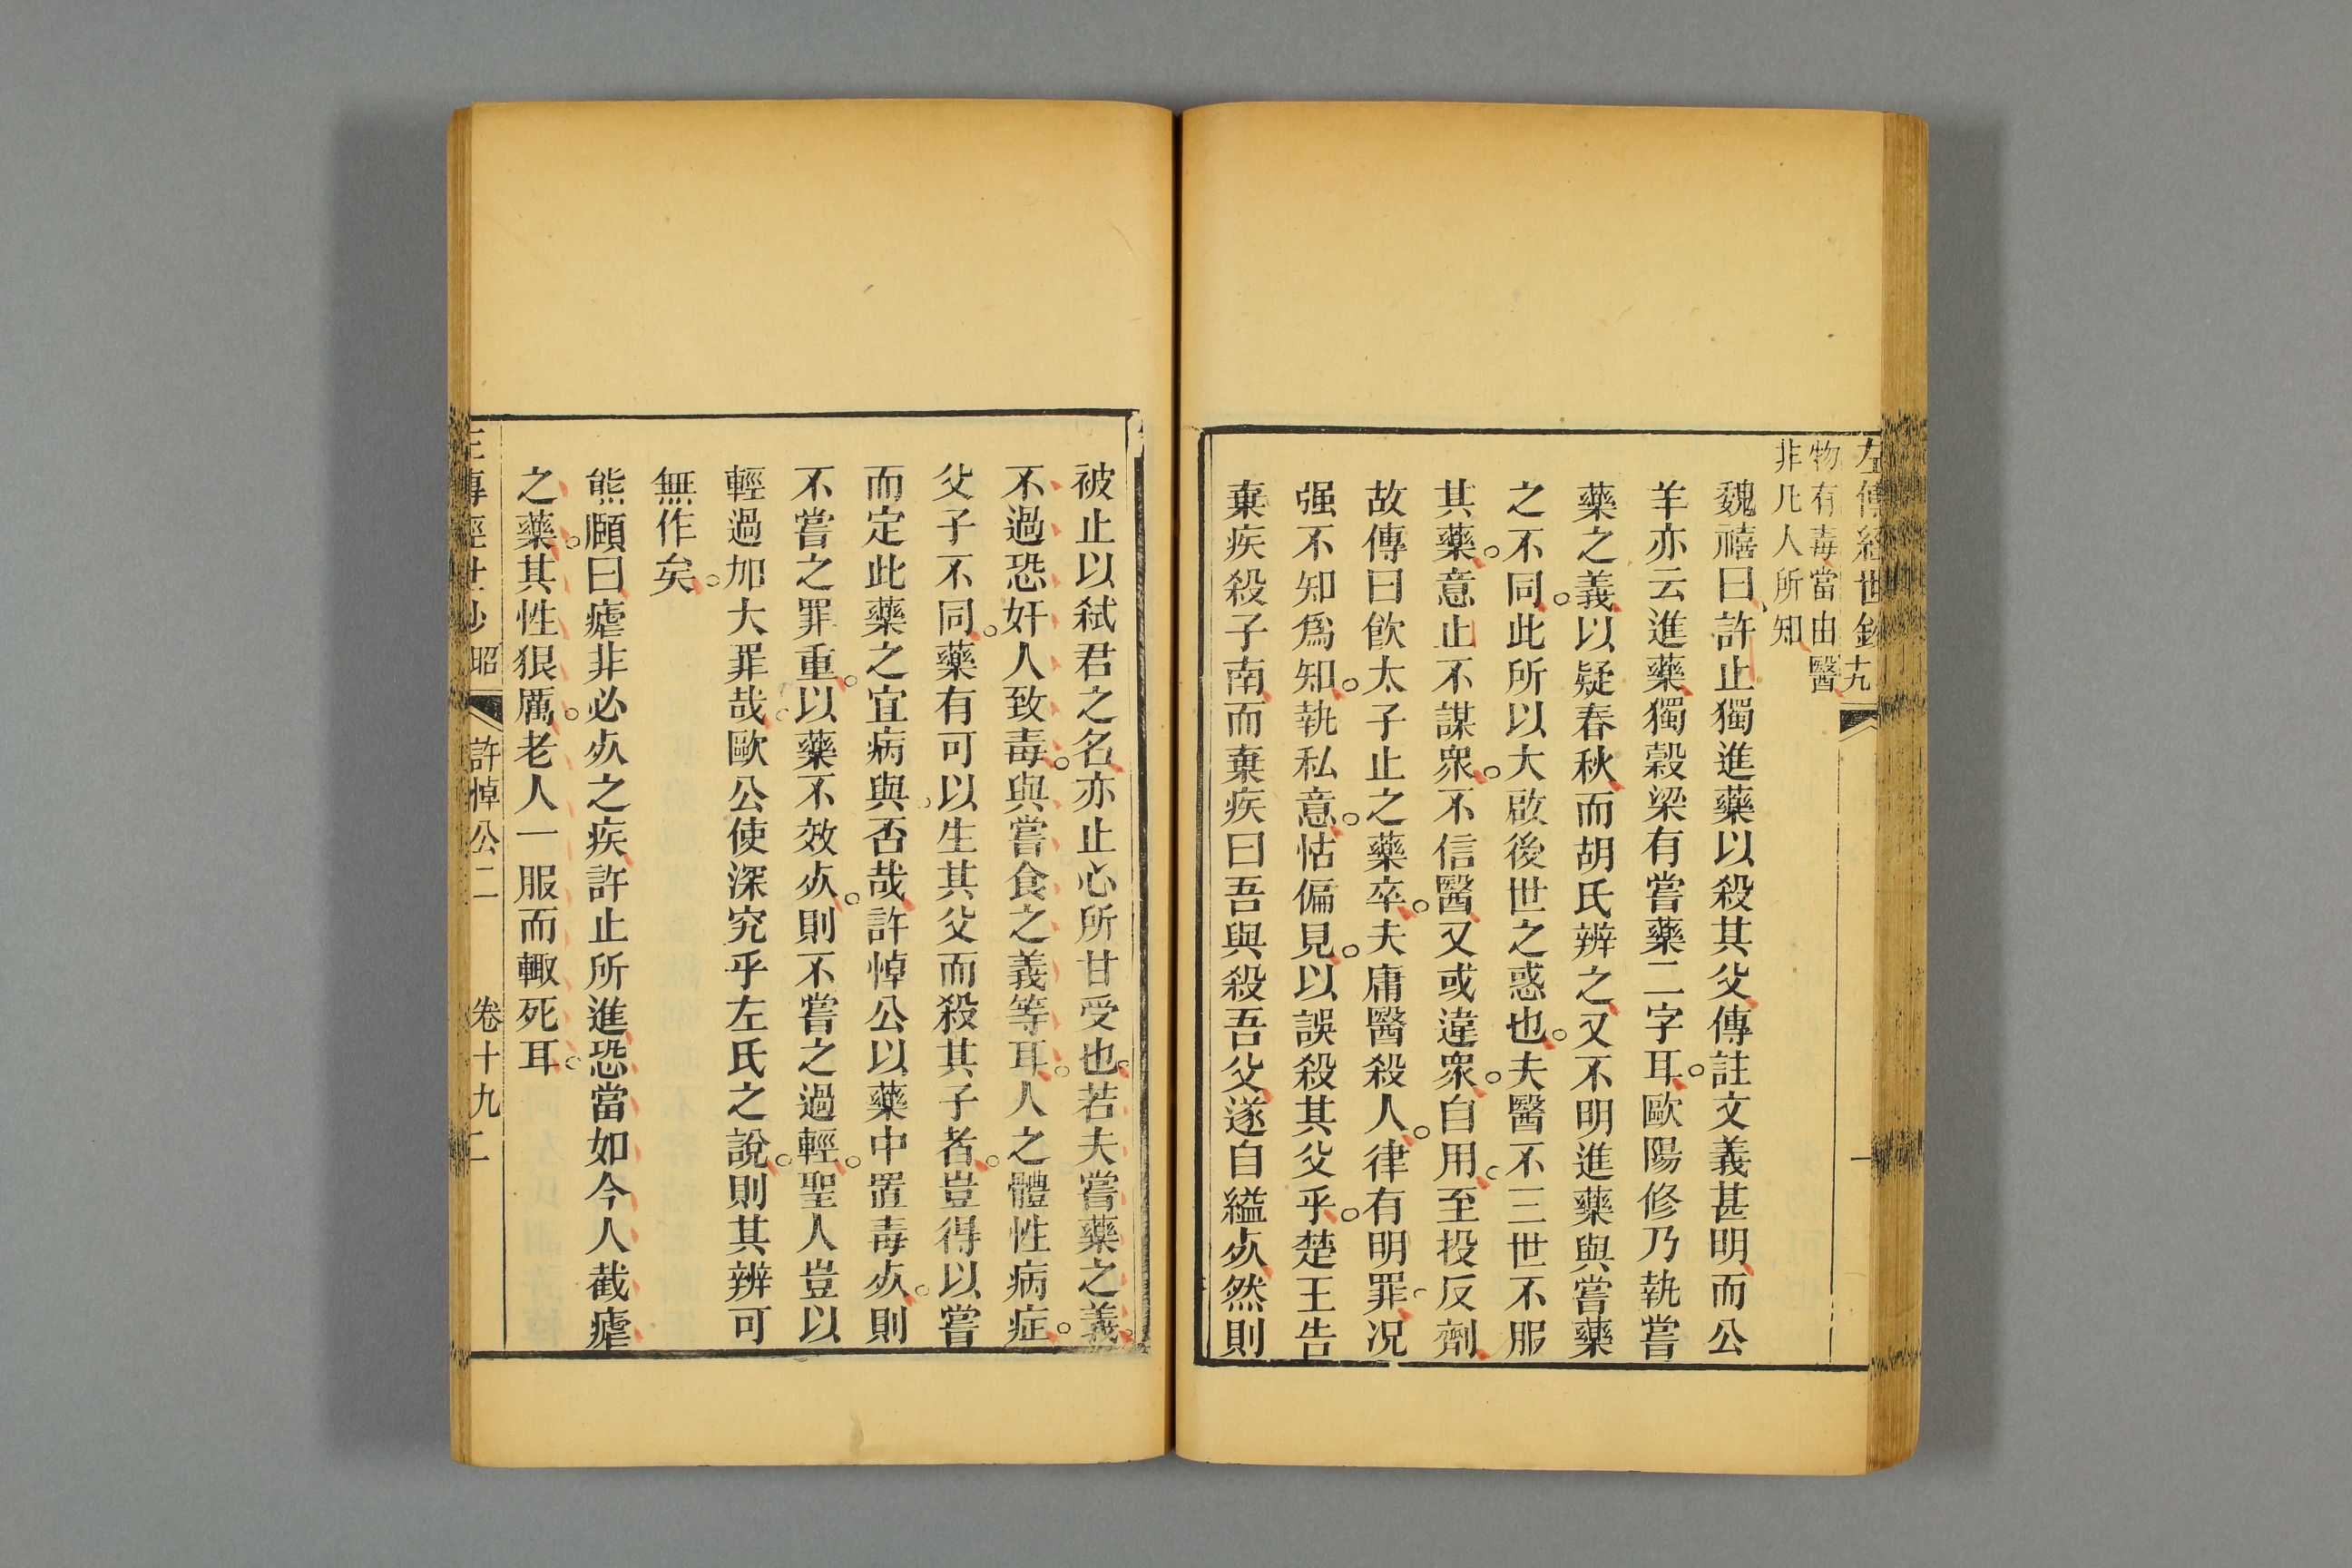 左傳經世鈔 九
物有毒當由醫
非凡人所知
魏禧曰許止獨進藥以殺其父傳註文義甚明而公
羊亦云進藥獨榖梁有嘗藥二字耳歐陽修乃執嘗
藥之義以疑春秋而胡氏辨之又不明進藥與嘗藥
之不同此所以大啟後世之惑也夫醫不三世不服
其藥意止不謀衆不信醫又或違衆自用至投反劑
故傳曰飲太子止之藥卒夫庸醫殺人律有明罪况
强不知爲知執私意怙偏見以誤殺其父乎楚王告
棄疾殺子南而棄疾曰吾與殺吾父遂自縊㱔然則
被止以弑君之名亦止心所甘受也若夫嘗藥之義
不過恐奸人致毒與嘗食之義等耳人之體性病症
父子不同藥有可以生其父而殺其子者豈得以嘗
而定此藥之宜病與否哉許悼公以藥中置毒㱔則
不嘗之罪重以藥不效㱔則不嘗之過輕聖人豈以
輕過加大罪哉歐公使深究乎左氏之說則其辨可
無作矣
熊頤曰瘧非必㱔之疾許止所進恐當如今人截瘧
之藥其性狠厲老人一服而輙死耳
左傳經世鈔 昭 許悼公二 卷十九 二